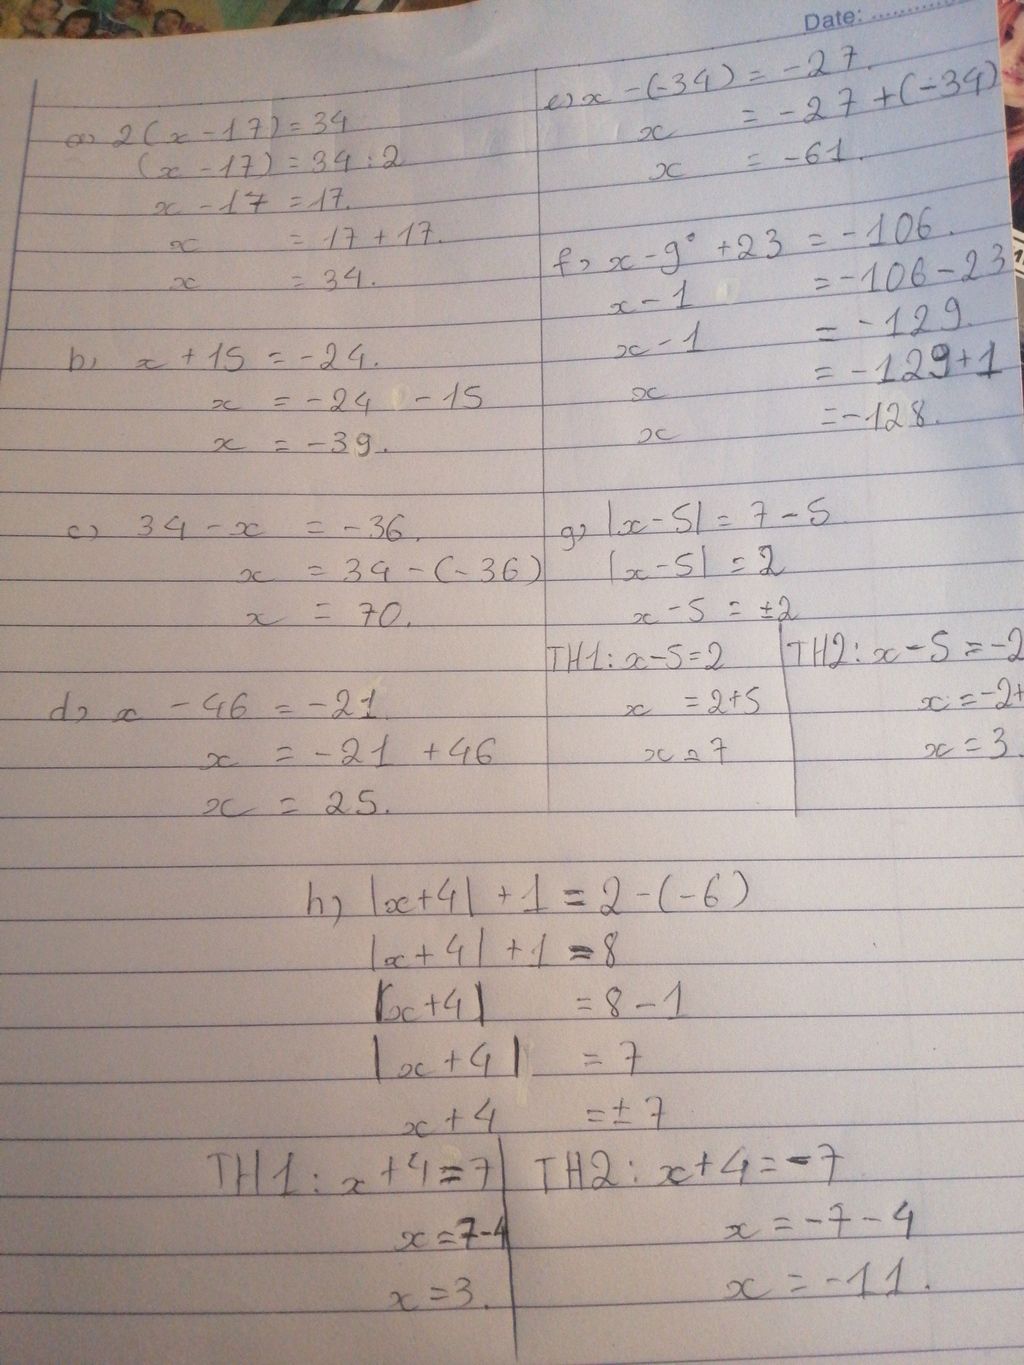 Date: ............
a, 2(x - 17) = 34
(x - 17) = 34 : 2
x - 17 = 17.
x = 17 + 17.
x = 34.
b, x + 15 = -24.
x = -24 - 15
x = -39.
c, 34 - x = -36.
x = 34 - (-36)
x = 70.
d, x - 46 = -21
x = -21 + 46
x = 25.
e, x - (-34) = -27.
x = -27 + (-34)
x = -61.
f, x - 9° + 23 = -106.
x - 1 = -106 - 23
x - 1 = -129.
x = -129 + 1
x = -128.
g, |x - 5| = 7 - 5
|x - 5| = 2
x - 5 = ±2
TH1: x - 5 = 2
x = 2 + 5
x = 7
TH2: x - 5 = -2
x = -2 +
x = 3.
h, |x + 4| + 1 = 2 - (-6)
|x + 4| + 1 = 8
|x + 4| = 8 - 1
|x + 4| = 7
x + 4 = ± 7
TH1: x + 4 = 7
x = 7 - 4
x = 3.
TH2: x + 4 = -7
x = -7 - 4
x = -11.